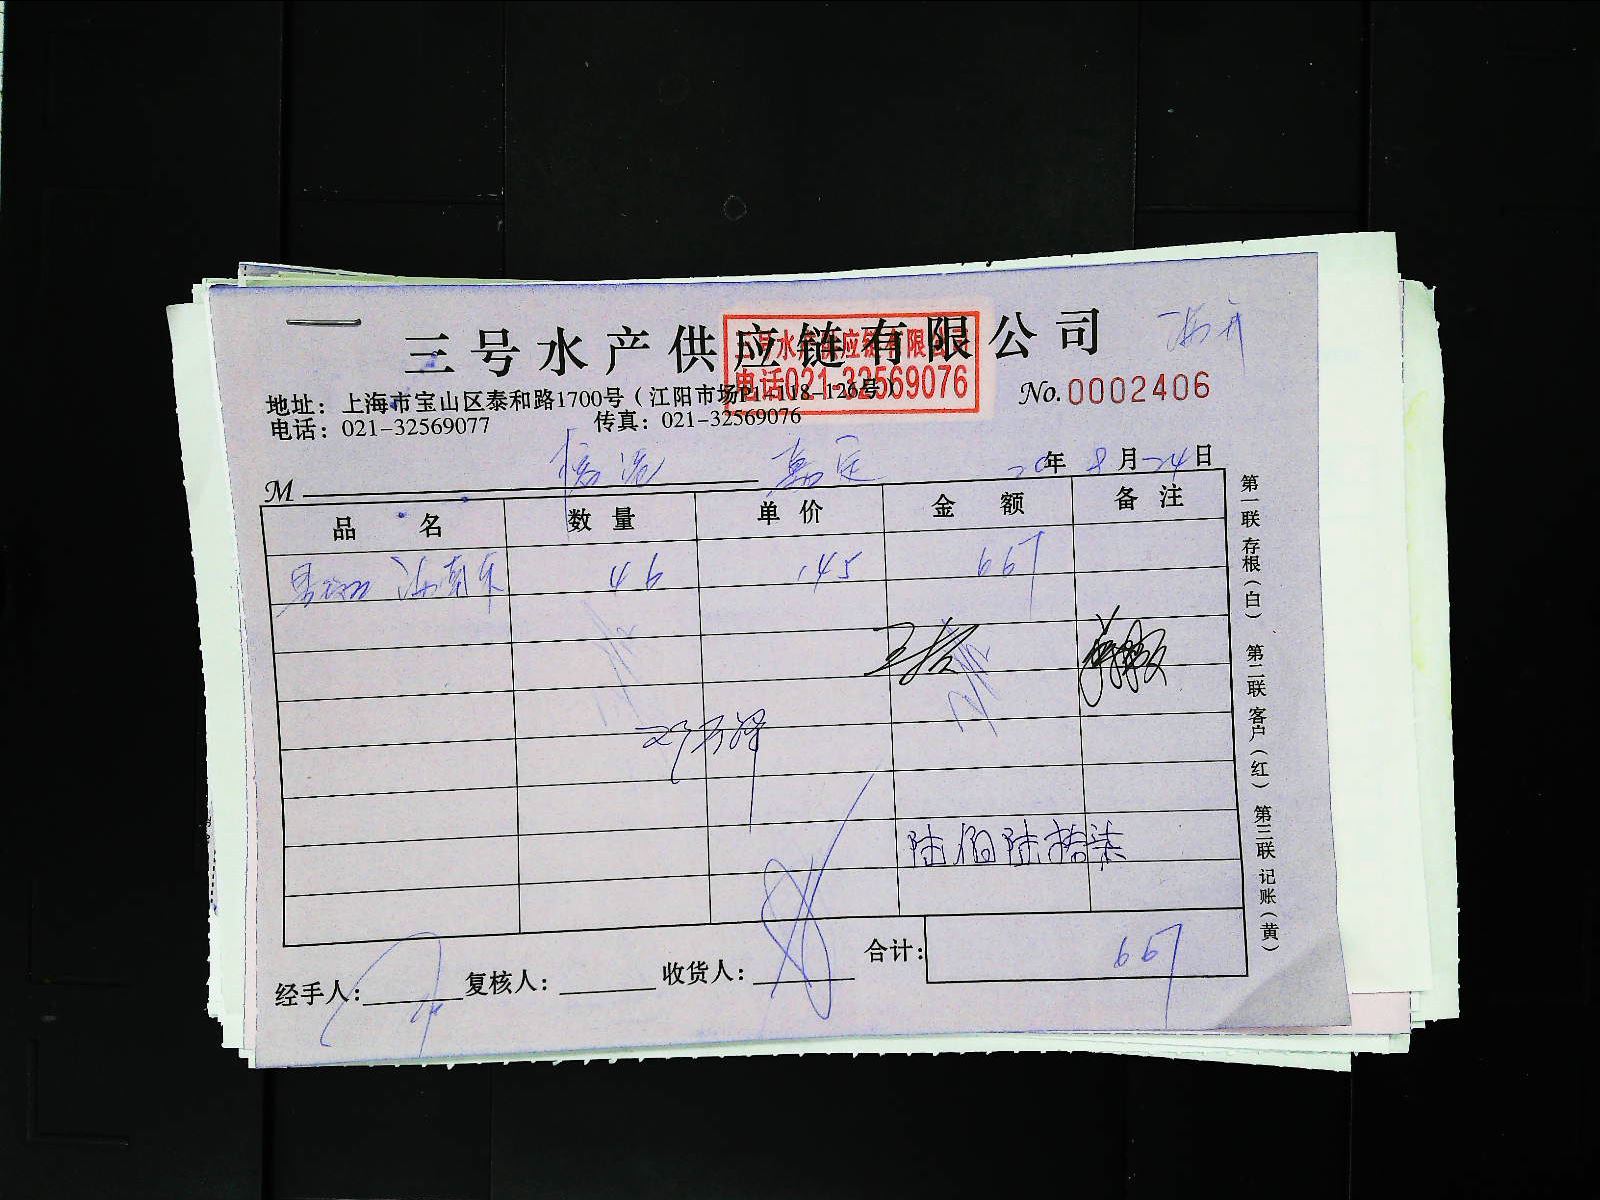 三号水产供应链有限公司
三号水产供应链有限公司
电话021-32569076
地址：上海市宝山区泰和路1700号（江阳市场P1-118-126号）
No.0002406
电话：021-32569077 传真：021-32569076
M 嘉定 20年8月24日
品名 数量 单价 金额 备注
46 145 667
陆佰陆拾柒
合计：667
经手人： 复核人： 收货人：
第一联 存根（白） 第二联 客户（红） 第三联 记账（黄）